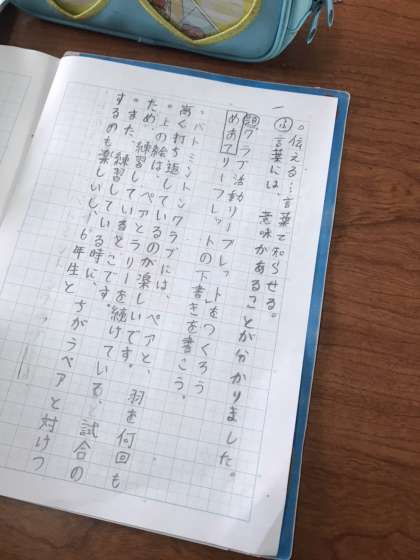 。伝える…言葉で知らせる。
言葉には、意味があることが分かりました。
題 クラブ活動リーフレットをつくろう
めあて リーフレットの下書きを書こう。
・バトミントンクラブには、ペアと、羽を何回も
高く打ち返しているのが楽しいです。
。上の絵は、ペアとラリーを続けている、試合の
ため、練習しているとこです。
。また、練習している時に、ちがうペアと対けつ
するのも楽しいし、6年生と